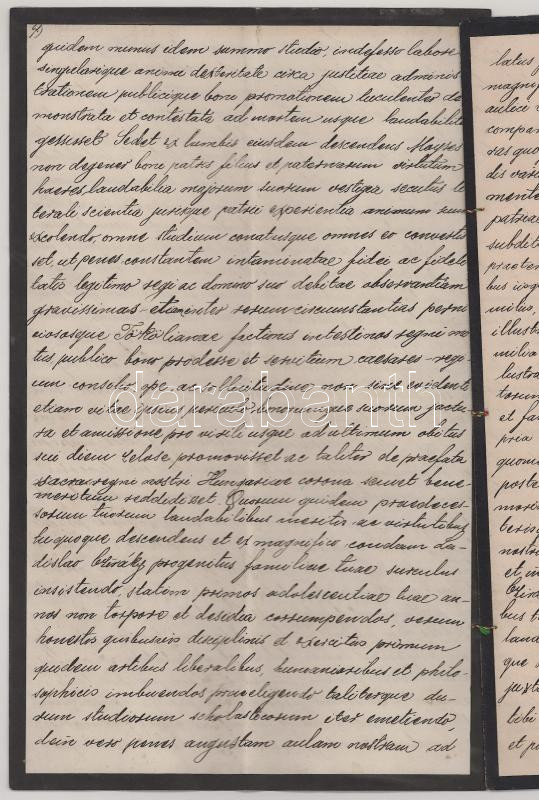 4)
quidem munus idem summo studio, indefesso labore
singularique animi dexteritate circa justitiae adminis
trationem publicique boni promotionem luculenter de
monstrata et contestata ad mortem usque laudabilit
gessisset Sed et ex lumbis eiusdem descendens Moyses
non degener boni patris filius et paternarum virtutum
haeres laudabilia majorum suorum vestigia secutus li
terali scientia jurisque patrii experientia animum suum
excolendo, omne studium conatusque omnes eo convertis
set, ut penes constantem intaminatae fidei ac fideli
tatis legitimo regi ac domino suo debitae observantiam
gravissimas etiam inter rerum circumstantias perni
ciososque Tökölianae factionis intestinos regni mo
tus publico bono prodesse et servitium caesareo-regi
um consilio, ope, ac sollicitudine, non sine evidenti
etiam vitae ipsius periculo bonorumque suorum jactu
ra et amissione pro virili usque ad ultimum obitus
sui diem zelose promovisset ac taliter de praefata
sacra regni nostri Hungariae corona semet bene
meritum reddidisset. Quorum quidem praedeces-
sorum tuorum laudabilibus meritis ac virtutibus
tu quoque descendens et ex magnifico condam La-
dislao progenitus familiae tuae surculus
insistendo, statim primos adolescentiae tuae an-
nos non torpore et desidia corrumpendos, verum
honestis quibusvis disciplinis et exercitus primum
quidem artibus liberalibus, humanioribus et philo-
sophicis imbuendos praeeligendo taliterque du-
rum studiorum scholasticorum iter emetiendo,
dein vero penes augustam aulam nostram ad
latus
magni
aulae
compar
ras quo
dis vari
mente
patriae
subdit
praeter
bus
milia,
illust
milia
lustra
torum
et fa
pria
quoniam
poste
mori
teris
nostr
et
bus t
lauda
que
juxta
libi
et p
darabanth